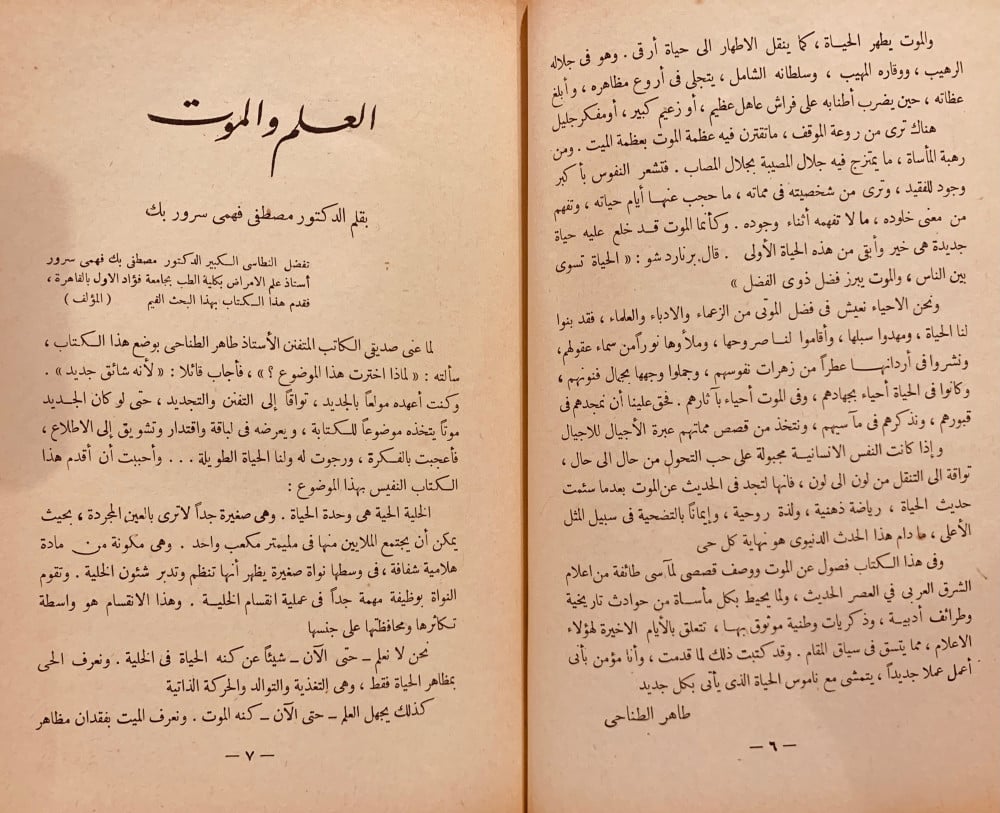 والموت يطهر الحياة ، كما ينقل الاطهار الى حياة أرقى . وهو فى جلاله
الرهيب ، ووقاره المهيب ، وسلطانه الشامل ، يتجلى فى أروع مظاهره ، وأبلغ
عظاته ، حين يضرب أطنابه على فراش عاهل عظيم ، أو زعيم كبير ، أو مفكر جليل
هناك ترى من روعة الموقف ، ما تقترن فيه عظمة الموت بعظمة الميت . ومن
رهبة المأساة ، ما يمتزج فيه جلال المصيبة بجلال المصاب . فتشعر النفوس بأكبر
وجود للفقيد ، وترى من شخصيته فى مماته ، ما حجب عنهـا أيام حياته ، وتفهم
من معنى خلوده ، ما لا تفهمه أثناء وجوده . وكأنما الموت قـد خلع عليه حياة
جديدة هى خير وأبقى من هذه الحياة الأولى . قال برنارد شو : « الحياة تسوى
بين الناس ، والموت يبرز فضل ذوى الفضل »
ونحن الاحياء نعيش فى فضل الموتى من الزعماء والادباء والعلماء ، فقد بنوا
لنا الحياة ، ومهدوا سبلها ، وأقاموا لنـا صروحها ، وملأوها نوراً من سماء عقولهم ،
ونشروا فى أردانهـا عطراً من زهرات نفوسهم ، وجملوا وجهها بجمال فنونهم ،
وكانوا فى الحياة أحياء بجهادهم ، وفى الموت أحياء بآثارهم . فحق علينا أن نمجدهم فى
قبورهم ، ونذكرهم فى مآسيهم ، ونتخذ من قصص مماتهم عبرة الأجيال للاجيال
و إذا كانت النفس الانسانيـة مجبولة على حب التحول من حال الى حال ،
تواقة الى التنقل من لون الى لون ، فانها لتجد فى الحديث عن الموت بعدما سئمت
حديث الحياة ، رياضة ذهنية ، ولذة روحية ، وإيمانًا بالتضحية فى سبيل المثل
الأعلى ، ما دام هذا الحدث الدنيوى هو نهاية كل حى
وفى هذا الكتاب فصول عن الموت ووصف قصصى لمآسى طائفة من اعلام
الشرق العربي في العصر الحديث ، ولما يحيط بكل مأسـاة من حوادث تاريخية
وطرائف أدبيـة ، وذكريات وطنية موثوق بهـا ، تتعلق بالأيام الاخيرة لهؤلاء
الاعلام ، مما يتسق فى سياق المقام . وقد كتبت ذلك لما قدمت ، وأنا مؤمن بأنى
أعمل عملا جديداً ، يتمشى مع ناموس الحياة الذى يأتى بكل جديد
طاهر الطناحى
— ٦ —
العـلم والموت
بقلم الدكتور مصطفى فهمى سرور بك
تفضل النطاسى الـكبير الدكتور مصطفى بك فهمى سرور
أستاذ علم الامراض بكلية الطب بجامعة فؤاد الاول بالقاهرة ،
فقدم هذا الـكتاب بهذا البحث القيم ( المؤلف )
لما عنى صديقى الكاتب المتفنن الأستاذ طاهر الطناحى بوضع هذا الـكتاب ،
سألته : « لماذا اخترت هذا الموضوع ؟ » ، فأجاب قائلا : « لأنه شائق جديد » .
وكنت أعهده مولعاً بالجديد ، تواقًا إلى التفنن والتجديد ، حتى لو كان الجديد
موتًا يتخذه موضوعًا للـكتابة ، ويعرضه فى لباقة واقتدار وتشويق إلى الاطلاع ،
فأعجبت بالفكرة ، ورجوت له ولنا الحياة الطويلة . . . وأحببت أن أقدم هذا
الـكتاب النفيس بهذا الموضوع :
الخلية الحية هى وحدة الحياة . وهى صغيرة جداً لا ترى بالعين المجردة ، بحيث
يمكن أن يجتمع الملايين منها فى مليمتر مكعب واحد . وهى مكونة من مادة
هلامية شفافة ، فى وسطها نواة صغيرة يظهر أنها تنظم وتدبر شئون الخلية . وتقوم
النواة بوظيفة مهمة جداً فى عملية انقسام الخليـة . وهذا الانقسام هو واسطة
تـكاثرها ومحافظتها على جنسها
نحن لا نعلم – حتى الآن – شيئًا عن كنه الحياة فى الخلية . ونعرف الحى
بمظاهر الحياة فقط ، وهى التغذية والتوالد والحركة الذاتية
كذلك يجهل العلم – حتى الآن – كنه الموت . ونعرف الميت بفقدان مظاهر
— ٧ —